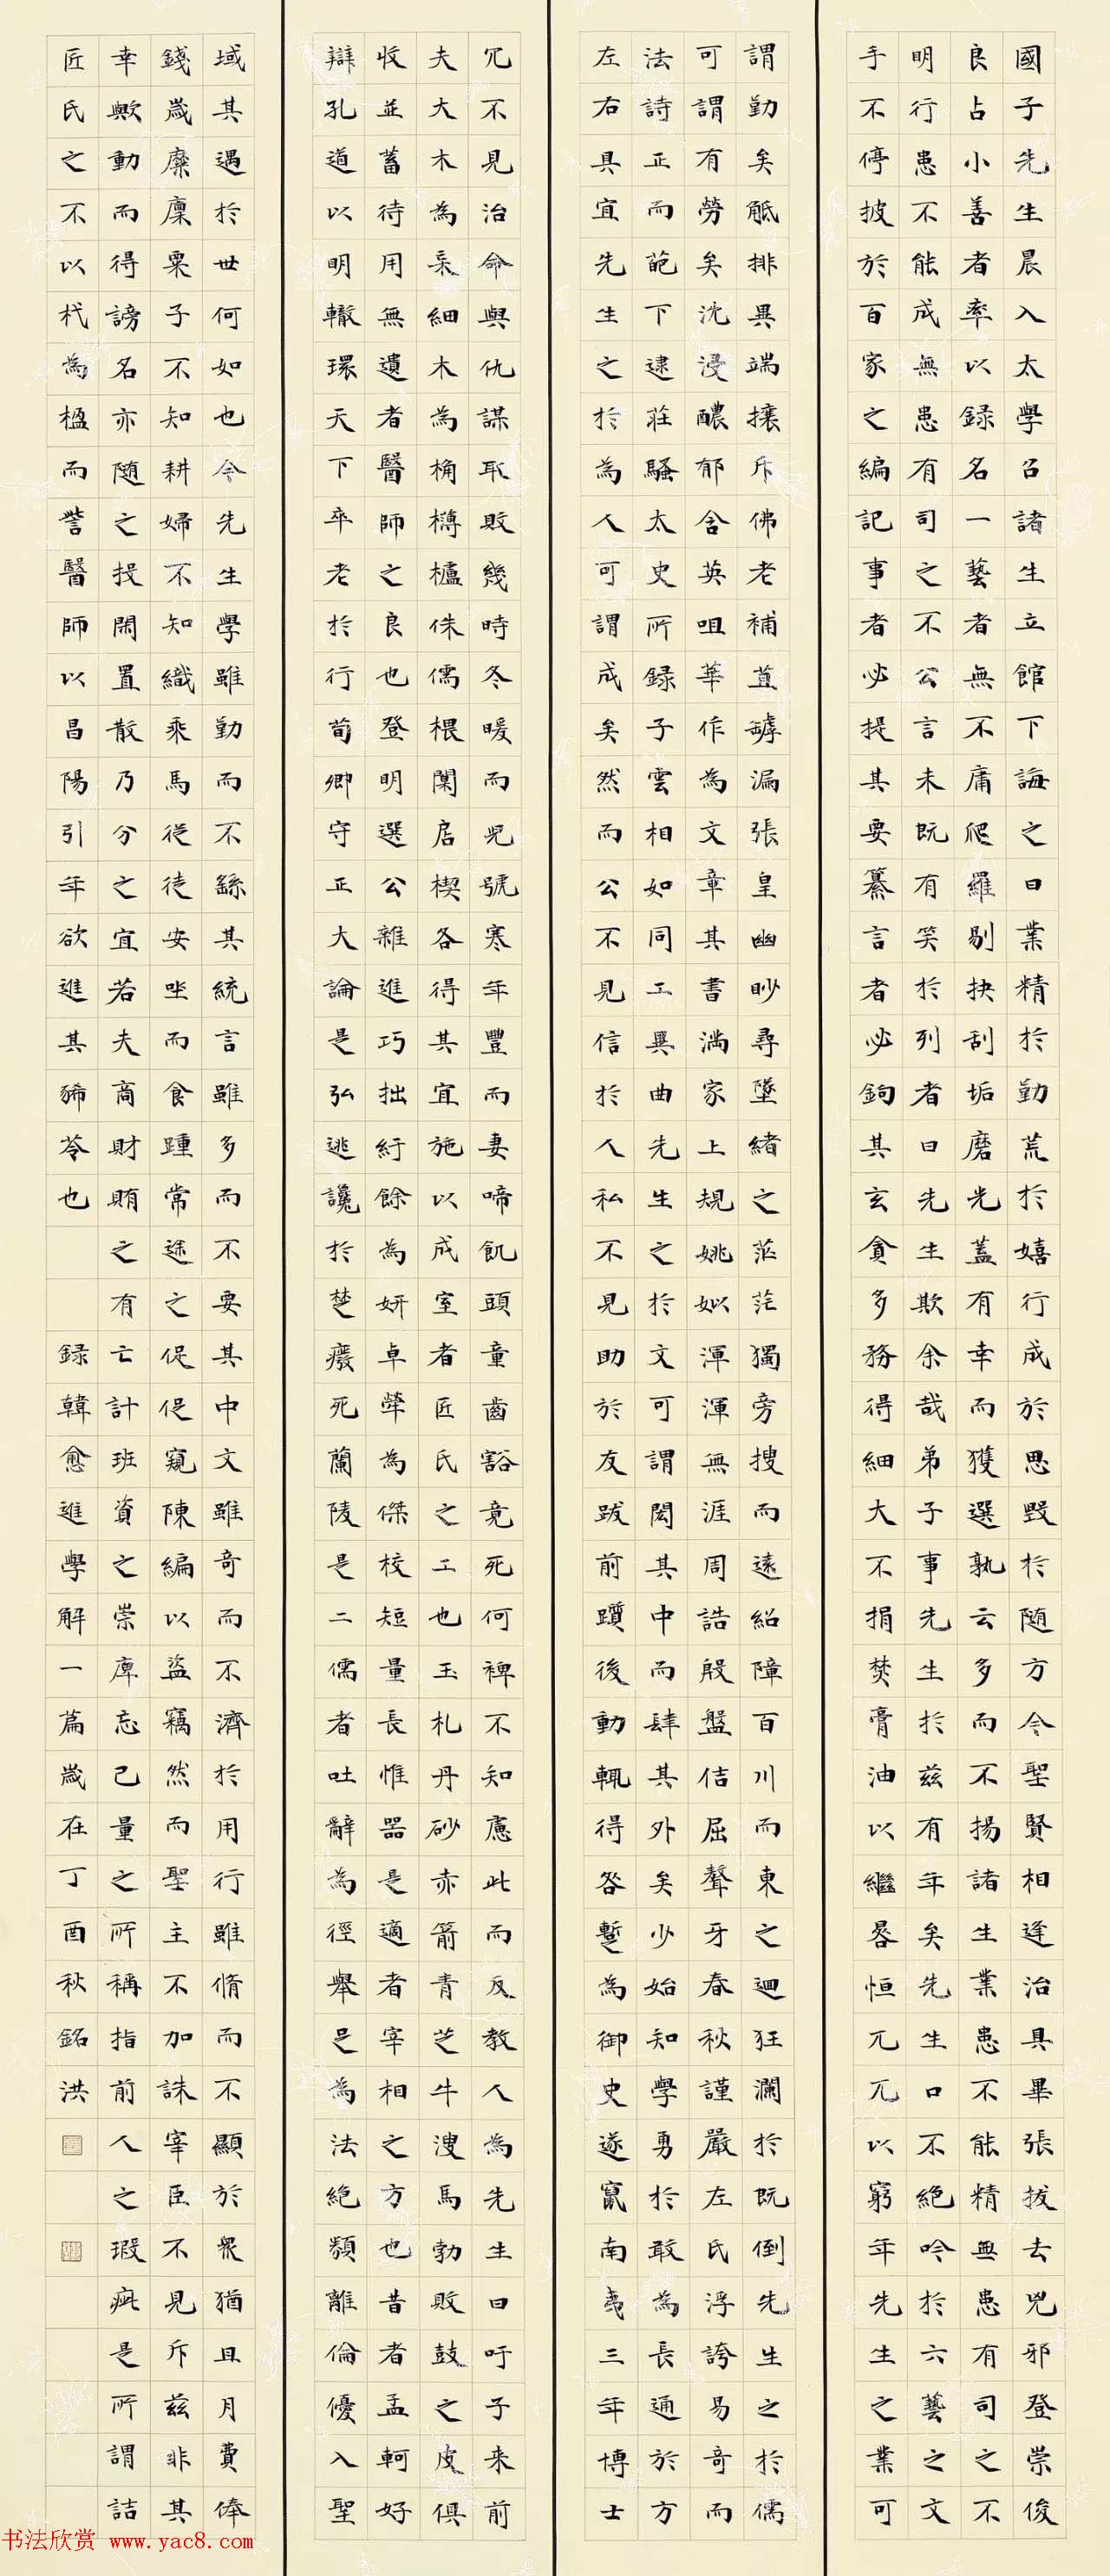 國子先生晨入太學召諸生立館下誨之曰業精於勤荒於嬉行成於思毀於隨方今聖賢相逢治具畢張拔去兇邪登崇俊
良占小善者率以錄名一藝者無不庸爬羅剔抉刮垢磨光蓋有幸而獲選孰云多而不揚諸生業患不能精無患有司之不
明行患不能成無患有司之不公言未既有笑於列者曰先生欺余哉弟子事先生於茲有年矣先生口不絕吟於六藝之文
手不停披於百家之編記事者必提其要纂言者必鉤其玄貪多務得細大不捐焚膏油以繼晷恒兀兀以窮年先生之業可
謂勤矣觝排異端攘斥佛老補苴罅漏張皇幽眇尋墜緒之茫茫獨旁搜而遠紹障百川而東之迴狂瀾於既倒先生之於儒
可謂有勞矣沈浸醲郁含英咀華作為文章其書滿家上規姚姒渾渾無涯周誥殷盤佶屈聱牙春秋謹嚴左氏浮誇易奇而
法詩正而葩下逮莊騷太史所錄子雲相如同工異曲先生之於文可謂閎其中而肆其外矣少始知學勇於敢為長通於方
左右具宜先生之於為人可謂成矣然而公不見信於人私不見助於友跋前躓後動輒得咎暫為御史遂竄南夷三年博士
冗不見治命與仇謀取敗幾時冬暖而兒號寒年豐而妻啼飢頭童齒豁竟死何裨不知慮此而反教人為先生曰吁子來前
夫大木為杗細木為桷欂櫨侏儒椳闑扂楔各得其宜施以成室者匠氏之工也玉札丹砂赤箭青芝牛溲馬勃敗鼓之皮俱
收並蓄待用無遺者醫師之良也登明選公雜進巧拙紆餘為妍卓犖為傑校短量長惟器是適者宰相之方也昔者孟軻好
辯孔道以明轍環天下卒老於行荀卿守正大論是弘逃讒於楚廢死蘭陵是二儒者吐辭為徑舉足為法絕類離倫優入聖
域其遇於世何如也今先生學雖勤而不繇其統言雖多而不要其中文雖奇而不濟於用行雖脩而不顯於眾猶且月費俸
錢歲糜廩粟子不知耕婦不知織乘馬從徒安坐而食踵常途之促促窺陳編以盜竊然而聖主不加誅宰臣不見斥茲非其
幸歟動而得謗名亦隨之投閒置散乃分之宜若夫商財賄之有亡計班資之崇庳忘己量之所稱指前人之瑕疵是所謂詰
匠氏之不以杙為楹而訾醫師以昌陽引年欲進其豨苓也 錄韓愈進學解一篇歲在丁酉秋銘洪
书法欣赏 www.yac8.com